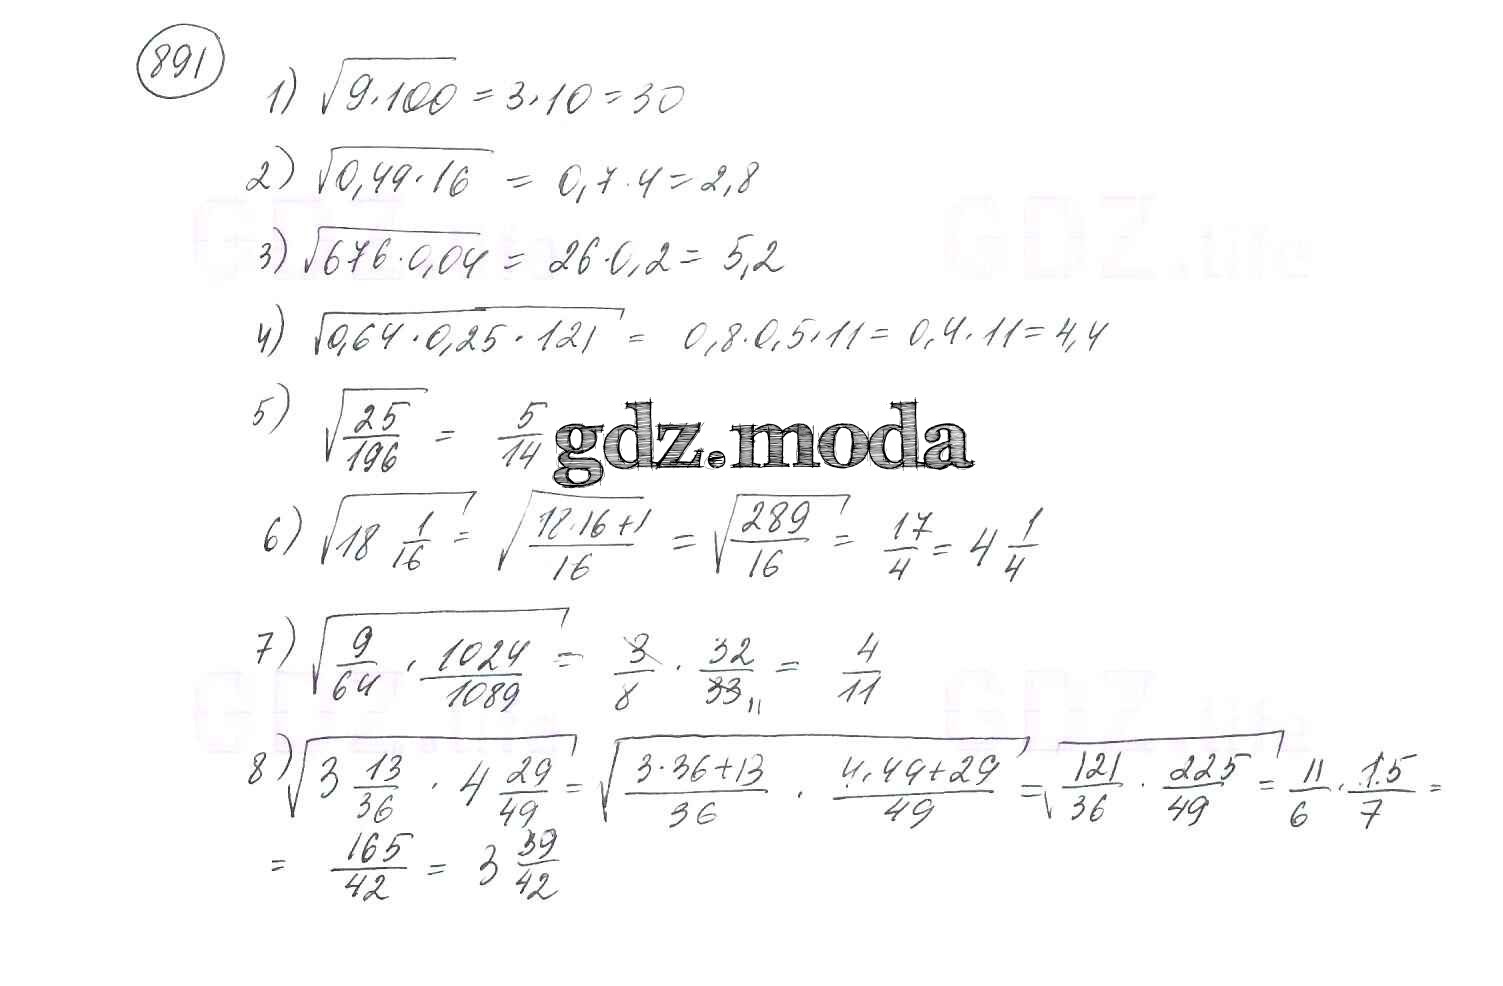 891
1) √(9·100) = 3·10 = 30
2) √(0,49·16) = 0,7·4 = 2,8
3) √(676·0,04) = 26·0,2 = 5,2
4) √(0,64·0,25·121) = 0,8·0,5·11 = 0,4·11 = 4,4
5) √(25/196) = 5/14
gdz.moda
6) √(18 1/16) = √((18·16+1)/16) = √(289/16) = 17/4 = 4 1/4
7) √(9/64 · 1024/1089) = 3/8 · 32/33 11 = 4/11
8) √(3 13/36 · 4 29/49) = √((3·36+13)/36 · (4·49+29)/49) = √(121/36 · 225/49) = 11/6 · 15/7 =
= 165/42 = 3 39/42
GDZ.life
GDZ.life
GDZ.life
GDZ.life